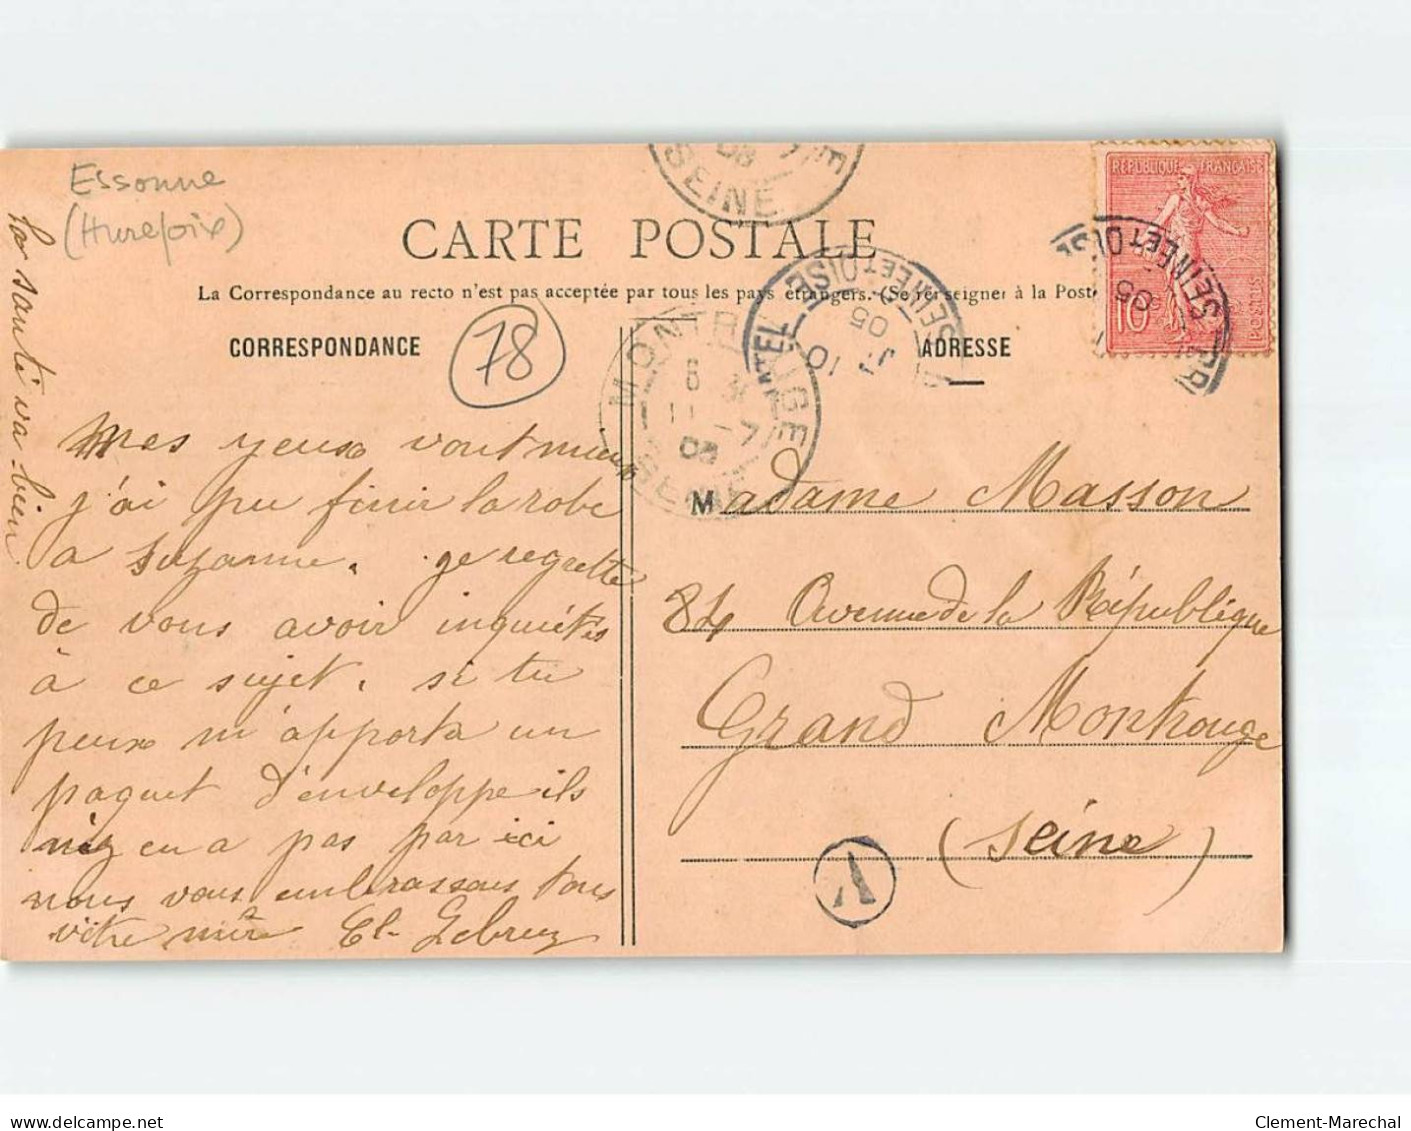 Essonne
(Hurepoix)
SEINE
CARTE POSTALE
La Correspondance au recto n'est pas acceptée par tous les pays étrangers. (Se renseigner à la Poste
CORRESPONDANCE
78
ADRESSE
RÉPUBLIQUE FRANÇAISE
10
SEINE ET OISE
05
SEINE ET OISE
05
MONTROUGE
8
11 -7
05
SEINE
la santé va bien
mes yeux vont mieux
j'ai pu finir la robe
a suzanne. je regrette
de vous avoir inquiétés
à ce sujet. si tu
peux m'apporta un
paquet d'enveloppe ils
en a pas par ici
nous vous embrassons tous
votre mère
Madame Masson
84 Avenue de la République
Grand Montrouge
(Seine)
Clement-Marechal